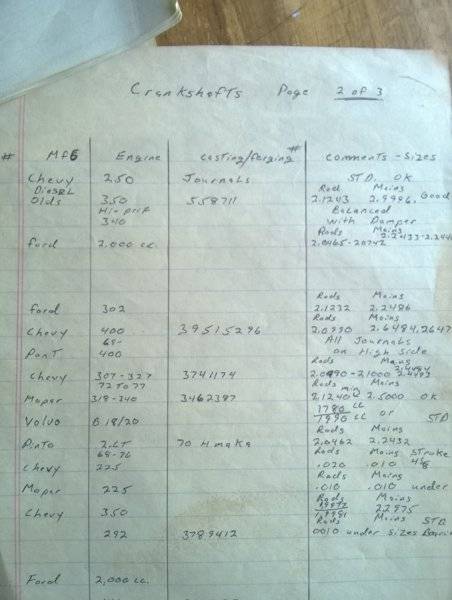 Crankshafts Page 2 of 3
# Mfg Engine Casting/forging # Comments - Sizes
Chevy 250 Journals STD. OK
Diesel Rods Mains
Olds 350 558711 2.1243 2.9996, Good
Hi-perf Balanced
340 with Damper
Rods Mains
Ford 2,000 cc. 2.0465-20472
Rods Mains
Ford 302 2.1232 2.2486
Rods Mains
Chevy 400 39515296
68- All Journals
Pont 400 on High Side
Rods Mains
Chevy 307-327 3741174 2.0990-2.1000
72 to 77 Rods Mains
Mopar 318-340 3462387 2.5000 OK
1780 cc or
Volvo B 18/20 1990 cc STD
Rods Mains
Pinto 2.LT 70 HM 2.0462 2.2432
68-76 Rods Mains Stroke
Chevy 225 .020 .010
Rods Mains
Mopar 225 .010 .010 under
Rods Mains
Chevy 350 2.2975
Rods Mains STD
292 3789412 0010 under Sizes
Ford 2,000 cc.